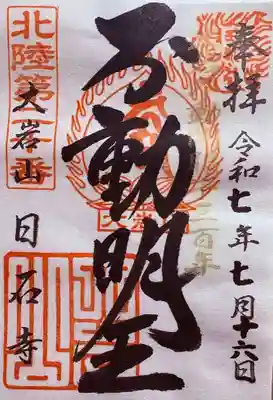 奉拝
令和七年七月十六日
不動明王
大岩山
日石寺
北陸第一
大岩山
三百年